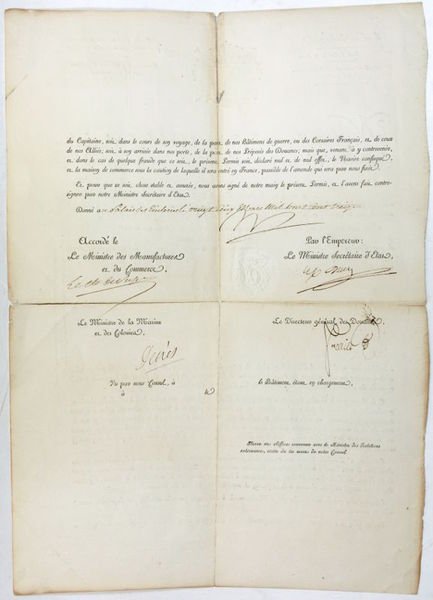 du Capitaine, soit, dans le cours de son voyage, de la part de nos Bâtiments de guerre, ou des Corsaires Français, et de ceux
de nos Alliés, soit, à son arrivée dans nos ports, de la part de nos Préposés des Douanes; mais que, venant à y contrevenir,
et dans le cas de quelque fraude que ce soit, le présent Permis soit déclaré nul et de nul effet, le Navire confisqué,
et la maison de commerce sous la caution de laquelle il sera entré en France, passible de l'amende qui sera par nous fixée.
Et pour que ce soit chose stable et assurée, nous avons signé de notre main le présent Permis, et l'avons fait contre-
signer par notre Ministre Secrétaire d'État.
Donné au Palais des Tuileries le vingt cinq mil huit cent treize
Accordé le
Par l'Empereur:
Le Ministre des Manufactures
et du Commerce,
Le Ministre Secrétaire d'État,
Le Ministre de la Marine
et des Colonies,
Le Directeur général des Douanes,
Decrès
Vu par nous Consul, à
à le
le Bâtiment étant en chargement,
Notre Ministre des Relations
extérieures, notre Consul